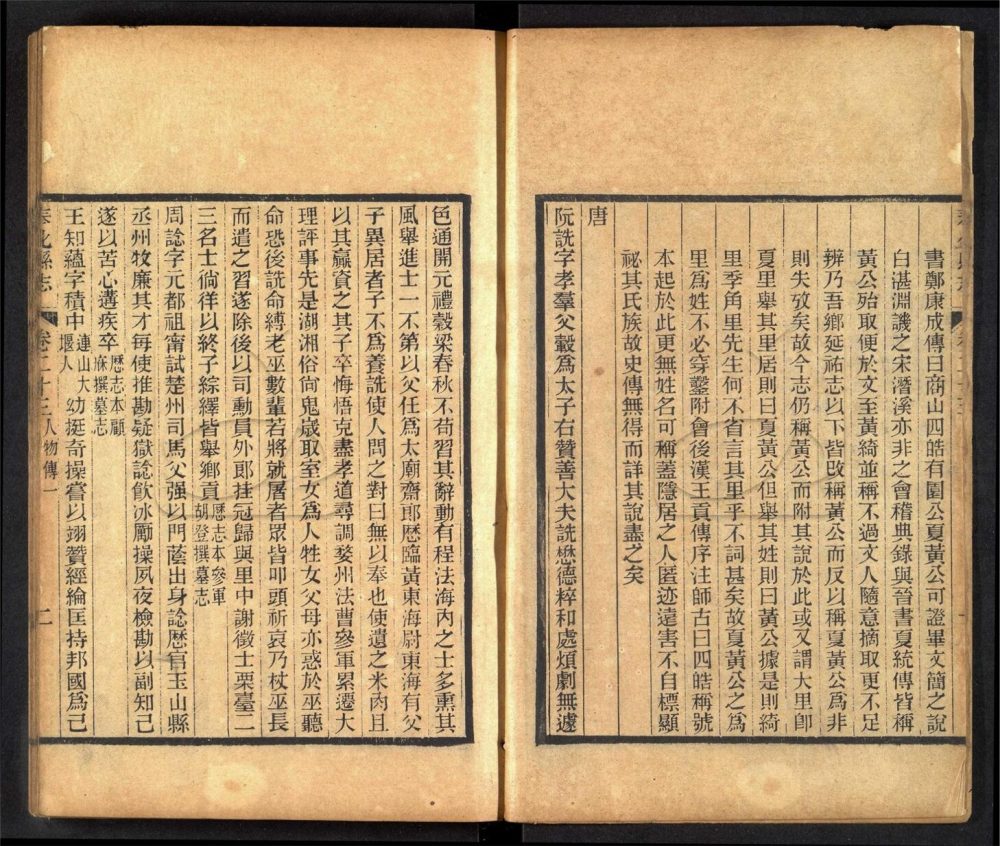 書鄭康成傳曰商山四皓有園公夏黃公可證畢文簡之說
白湛淵譏之宋潛溪亦非之會稽典錄與晉書夏統傳皆稱
黃公殆取便於文至黃綺並稱不過文人隨意摘取更不足
辨乃吾鄉延祐志以下皆改稱黃公而反以稱夏黃公爲非
則失攷矣故今志仍稱黃公而附其說於此或又謂大里卽
夏里舉其里居則曰夏黃公但舉其姓則曰黃公據是則綺
里季角里先生何不省言其里乎不詞甚矣故夏黃公之爲
里爲姓不必穿鑿附會後漢王貢傳序注師古曰四皓稱號
本起於此更無姓名可稱蓋隱居之人匿迹遠害不自標顯
祕其氏族故史傳無得而詳其說盡之矣
唐
阮詵字孝羣父穀爲太子右贊善大夫詵懋德粹和處煩劇無遽
色通開元禮穀梁春秋不苟習其辭動有程法海內之士多熏其
風舉進士一不第以父任爲太廟齋郎歷臨黃東海尉東海有父
子異居者子不爲養詵使人問之對曰無以奉也使遺之米肉且
以其贏資之其子卒悔悟克盡孝道尋調婺州法曹參軍累遷大
理評事先是湖湘俗尙鬼歲取室女爲人牲女父母亦惑於巫聽
命恐後詵命縛老巫數輩若將就屠者眾皆叩頭祈哀乃杖巫長
而遣之習遂除後以司勳員外郎挂冠歸與里中謝徵士栗臺二
三名士徜徉以終子綜繹皆舉鄉貢歷志本參軍胡登撰墓志
周諗字元都祖甯試楚州司馬父强以門蔭出身諗歷官玉山縣
丞州牧廉其才每使推勘疑獄諗飮冰勵操夙夜檢勘以副知己
遂以苦心遘疾卒歷志本顧庥撰墓志
王知蘊字積中連山大堰人幼挺奇操嘗以翊贊經綸匡持邦國爲己
奉化縣志 卷二十三人物傳一 二